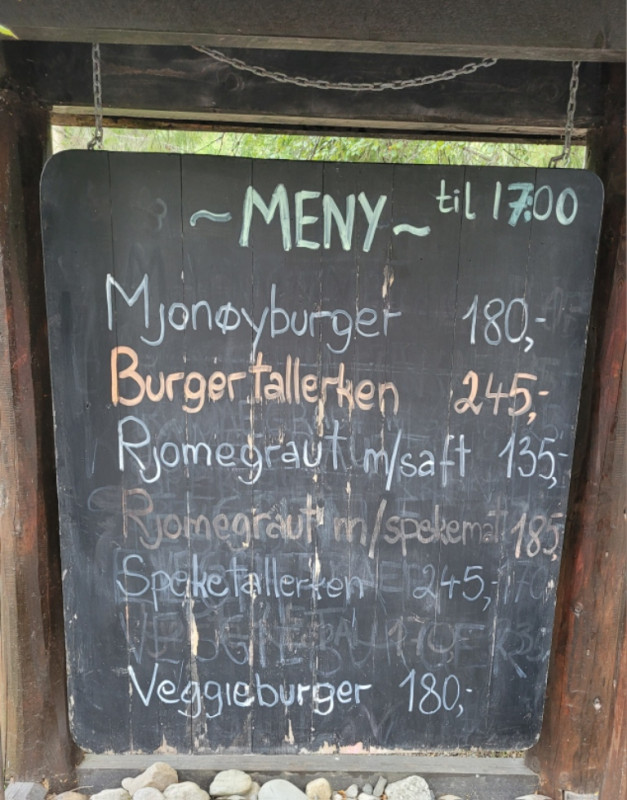 ~ MENY ~ til 17:00
Mjonøyburger 180,-
Burgertallerken 245,-
Rjomegraut m/saft 135,-
Rjomegraut m/spekemat 185,-
Speketallerken 245,-
Veggieburger 180,-